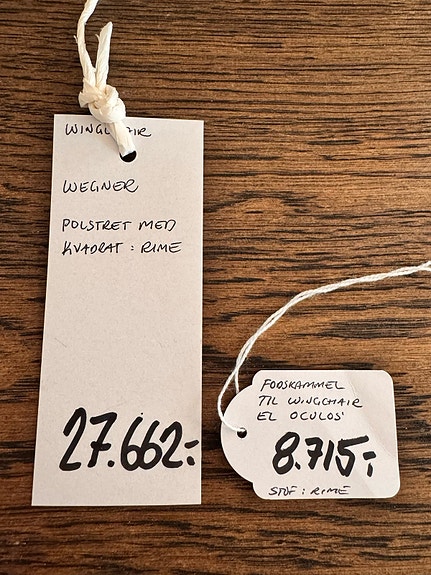 WINGCHAIR
WEGNER
POLSTRET MED
KVADRAT : RIME
27.662:-
FODSKAMMEL
TIL WINGCHAIR
EL OCULOS'
8.715,-
STOF : RIME